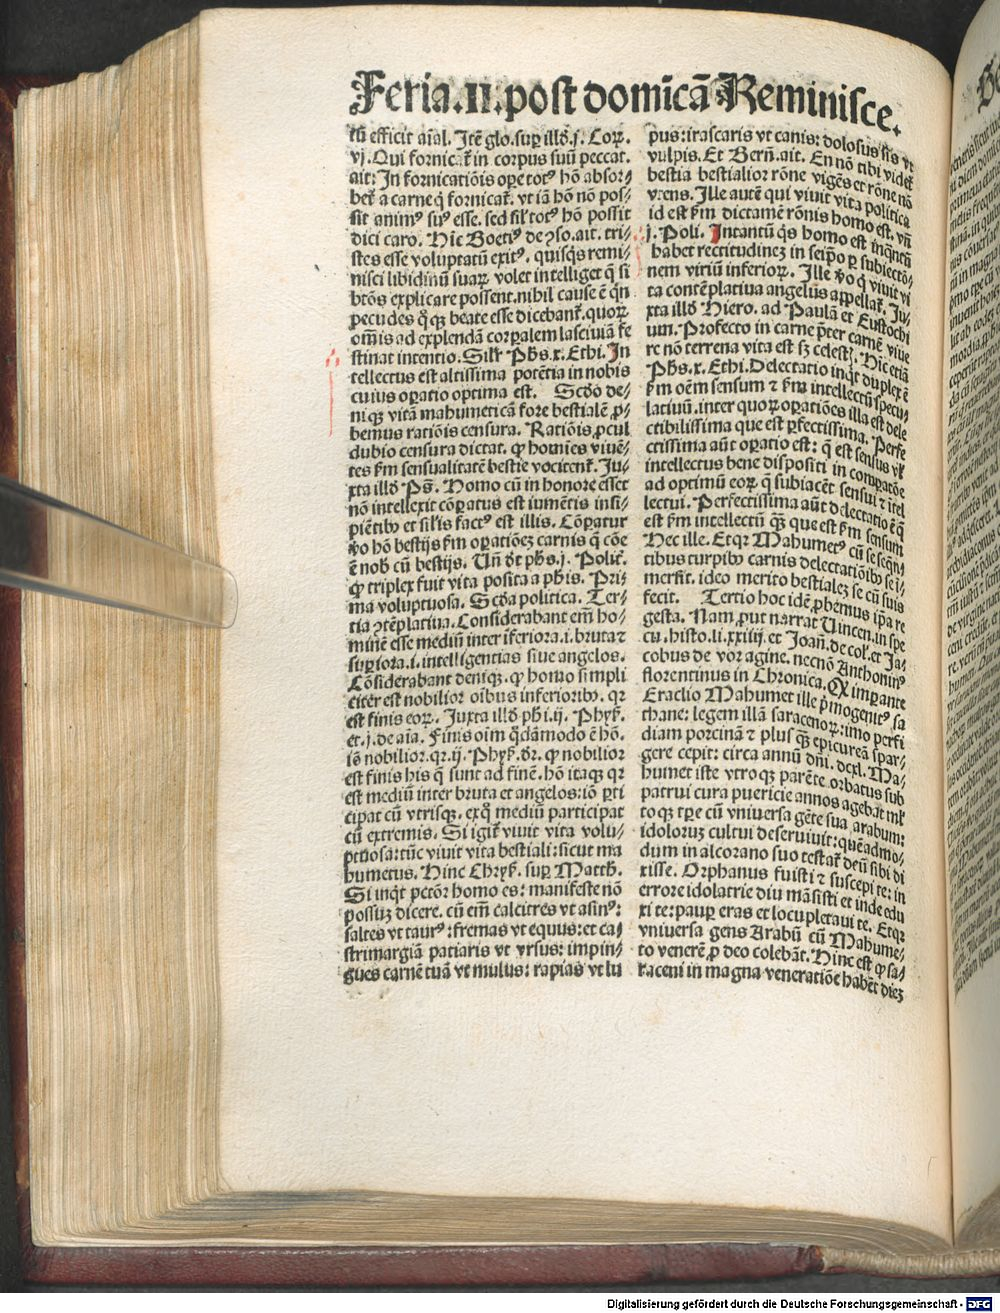 Feria.II.post domicã Reminisce.
tũ efficit aĩal. Itẽ glo.sup illð.j. Cor.
vj. Qui fornicat in corpus suũ peccat.
ait: In fornicatiõis ope totꝰ hõ absor⸗
bet a carne q̃ fornicat. vt iã hõ nõ pos⸗
sit animꝰ suꝰ esse. sed sil totꝰ hõ possit
dici caro. Hic Boetiꝰ de ↄso.ait. tri⸗
stes esse voluptatũ exitꝰ. quisqs remi⸗
nisci libidinũ suaꝝ volet intelliget q̃ si
btõs explicare possent.nihil cause ẽ qñ
pecudes q̃ꝗ beate esse dicebant.quoꝝ
omĩs ad explendã corpalem lasciuiã fe
stinat intentio. Silr Phs.x. Ethi. In
tellectus est altissima potẽtia in nobis
cuius opatio optima est. Scðo de⸗
niqꝫ vitã mahumeticã fore bestialẽ ꝓ⸗
bemus ratiõis censura. Ratiõis ꝓcul
dubio censura dictat. ꝙ homĩes viuẽ⸗
tes fm sensualitatẽ bestie vocitent. Ju⸗
xta illð Ps. Homo cũ in honore esset
nõ intellexit cõpatus est iumẽtis insi⸗
piẽtibꝰ et silis factꝰ est illis. Cõpatur
ꝟo hõ bestijs fm opatiõeꝫ carnis q̃ cõe
ẽ nob cũ bestijs. Uñ ðr phs.j. Polit.
ꝙ triplex fuit vita posita a phis. Pri⸗
ma voluptuosa. Scða politica. Ter⸗
tia ↄtẽplatiua. Considerabant em̃ ho⸗
minẽ esse mediũ inter ĩferiora.i.bruta ⁊
supiora.i.intelligentias siue angelos.
Cõsiderabant deniqꝫ. ꝙ homo simpli
citer est nobilior oĩbus inferioribꝰ. qr
est finis eoꝝ. Juxta illð phi.ij. Phyẽ.
et.j.de aĩa. Finis oim q̃dãmodo ẽ hõ.
iõ nobilior.qr.ij. Phyẽ.ðr.ꝙ nobilior
est finis his q̃ sunt ad finẽ. hõ itaqꝫ qr
est mediũ inter bruta et angelos:iõ pti
cipat cũ vtrisqꝫ. exq̃ mediũ participat
cũ extremis. Si igit viuit vita volu⸗
ptuosa:tũc viuit vita bestiali:sicut ma
humetus. Hinc Chryẽ. sup Matth.
Si inqt pctõr homo es: manifeste nõ
possuꝫ dicere. cũ em̃ calcitres vt asinꝰ:
saltes vt taurꝰ:fremas vt equus:et ca⸗
strimargiã patiaris vt vrsus: impin⸗
gues carnẽ tuã vt mulus: rapias vt lu
pus:irascaris vt canis: dolosus sis vt
vulpis. Et Berñ.ait. En nõ tibi videt
bestia bestialior rõne vigẽs et rõne nõ
viens. Ille autẽ qui viuit vita politica
id est fm dictamẽ rõnis homo est. vñ
j. Poli. Intantũ qs homo est inqntũ
habet rectitudineꝫ in seipo p subiectõ⸗
nem viriũ inferioꝝ. Ille ꝟo q̃ viuit vi
ta contẽplatiua angelus appellat. Ju⸗
xta illð Hiero. ad Paulã et Eustochi
um. Profecto in carne pter carnẽ viue
re nõ terrena vita est sꝫ celest. Hic etiã
Phs.x. Ethi. Delectatio inqt duplex ẽ
fm oẽm sensum ⁊ fm intellectũ specu⸗
latiuũ. inter quoꝝ opatiões illa est dele
ctibilissima que est pfectissima. Perfe
ctissima aũt opatio est: q̃ est sensus vl
intellectus bene dispositi in compatõe
ad optimũ eoꝝ q̃ subiacẽt sensui ⁊ ĩtel
lectui. Perfectissima aũt delectatio ẽ q̃
est fm intellectũ q̃ꝫ que est fm sensum
Hec ille. Etqꝛ Mahumetꝰ cũ se seqñ⸗
tibus turpibꝰ carnis delectatiõibꝰ se ĩ⸗
mersit. ideo merito bestialeꝫ se cũ suis
fecit. Tertio hoc idẽ ꝓbemus ipa re
gesta. Nam, put narrat Uincen. in spe
cu. histo.li.xxiiij. et Joañ.de col. et Ja⸗
cobus de voragine. necnõ Anthoninꝰ
florentinus in Chronica. Ex impante
Eraclio Mahumet ille pmogenitꝰ sa
thane: legem illã saracenoꝝ: imo perfi
diam porcinã ⁊ plus q̃ꝫ epicureã spar⸗
gere cepit: circa annũ dñi. dcxl. Ma⸗
humet iste vtroqꝫ parẽte orbatus sub
patrui cura puericie annos agebat ml
toqꝫ tpe cũ vniuersa gẽte sua arabum:
idoloruꝫ cultui deseruiuit: quẽadmo⸗
dum in alcorano suo testat deũ sibi di
xisse. Orphanus fuisti ⁊ suscepi te: in
errore idolatrie diu mãsisti et inde edu
xi te: paup eras et locupletaui te. Etqꝛ
vniuersa gens Arabũ cũ Mahume⸗
to venerẽ ꝓ deo colebãt. Hinc est ꝙ sa⸗
raceni in magna veneratiõe habẽt dieꝫ
Digitalisierung gefördert durch die Deutsche Forschungsgemeinschaft - DFG